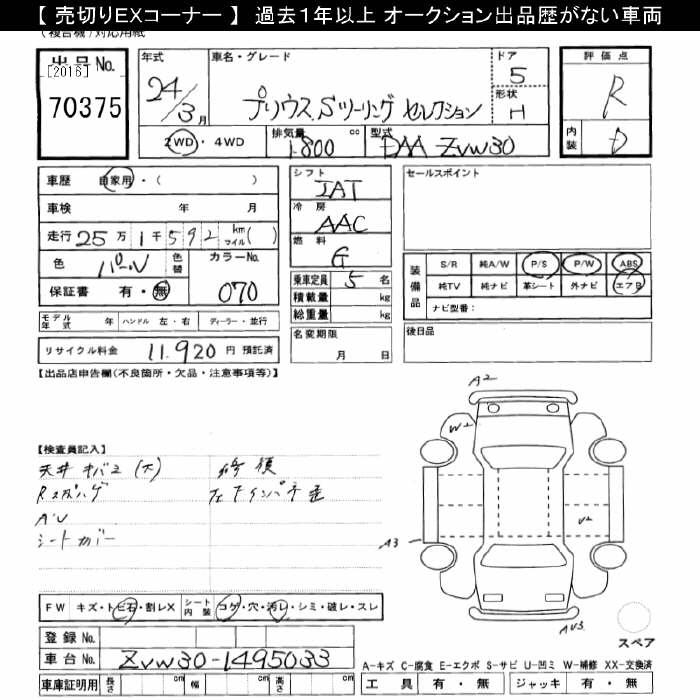 【 売切りEXコーナー 】 過去１年以上 オークション出品歴がない車両
(複合機/対応用紙
出品No.
[2016]
70375
年式
24/3月
車名・グレード
プリウス Sツーリング セレクション
ドア
5
形状
H
2WD・4WD
排気量
1800
cc
型式
DAA ZVW30
評価点
R
内装
D
車歴 自家用・( )
車検 年 月
走行 25万1千592 km マイル( )
色 パール 色替 カラーNo.
保証書 有・無 070
モデル年式 年 ハンドル 左・右 ディーラー・並行
リサイクル料金 11,920 円 預託済
シフト
IAT
冷房
AAC
燃料
G
乗車定員 5 名
積載量 kg
総重量 kg
名変期限
月 日
セールスポイント
装備品
S/R 純A/W P/S P/W ABS
純TV 純ナビ 革シート 外ナビ エアB
ナビ型番：
後日品
【出品店申告欄(不良箇所・欠品・注意事項等)】
【検査員記入】
天井
(大)
修復
A'U
左
シートカバー
A2
W2
U2
A3
AU3
スペア
FW キズ・トビ石・割レX シート内装 コゲ・穴・汚レ・シミ・破レ・スレ
登録No.
車台No. ZVW30-1495033
車庫証明用 長さ 幅 高さ
A-キズ C-腐食 E-エクボ S-サビ U-凹ミ W-補修 XX-交換済
工具 有・無 ジャッキ 有・無